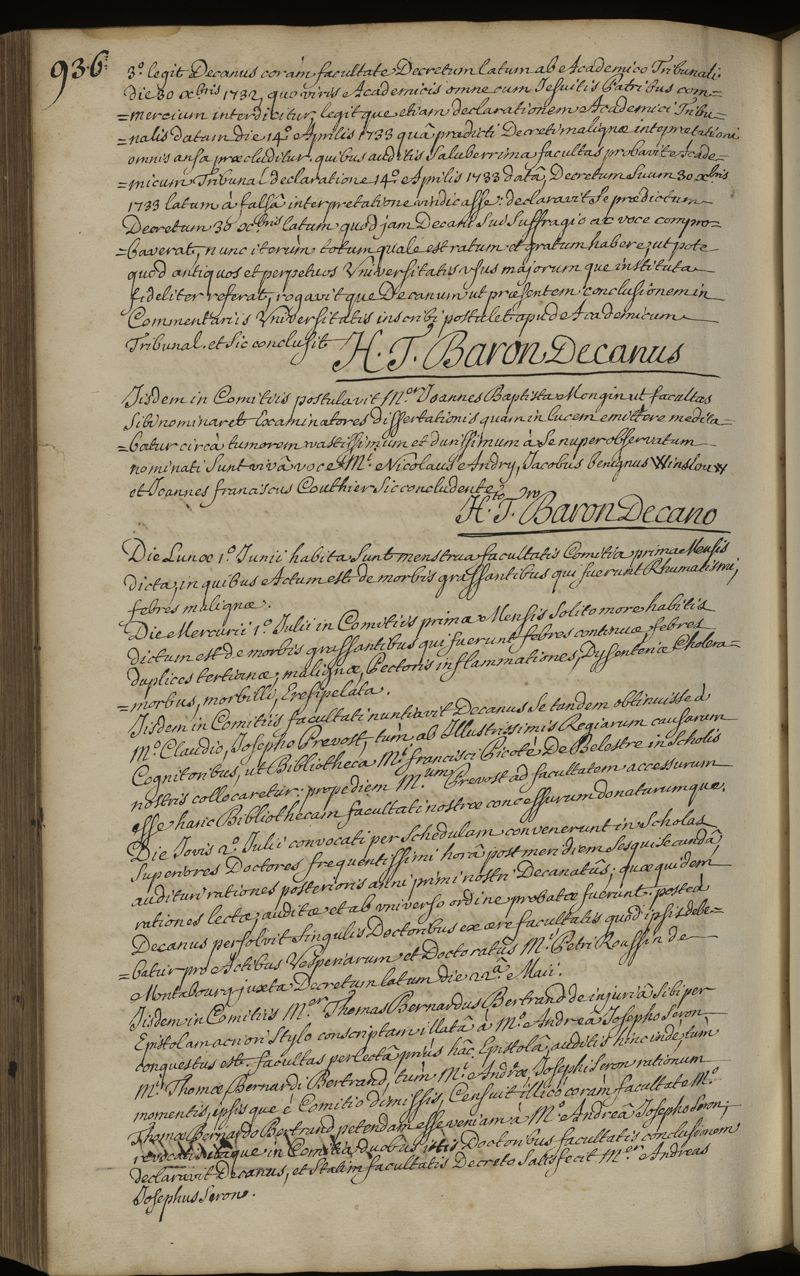 936.
3.º legit Decanus coràm facultate Decretum latum ab Academico Tribunali
die 30 xbris 1732, quo viris Academicis omne cum Jesuitis Patribus com=
=mercium interdicitur, legitque etiam declarationem Academici Tribu=
=nalis datam die 14.º Aprilis 1733 quâ prædicti Decreti malignæ intepretationi
omnis ansa præcluditur. quibus auditis Saluberrima facultas probavit Acade=
=micum Tribunal declaratione 14.º Aprilis 1733 datâ, Decretum Suum 30 xbris
1733 latum à falsâ interpretatione vindicasse: declaravit Se prædictum
Decretum 30 xbris latum quod jam Decani Sui Suffragio ac voce compro=
=baverat, nunc iterùm totum quale est ratum et gratum habere, ut pote
quod antiquos et perpetuos Universitatis usus majorum que instituta
fideliter referat, rogavitque Decanum ut præsentem conclusionem in
Commentariis Universitatis inscribi postulet apud Academicum
Tribunal. et Sic conclusit H. T. Baron Decanus
Jisdem in Comitiis postulavit M.er Joannes Baptista Mongin ut facultas
Sibi nominaret Examinatores dissertationis quam in lucem emittere medita=
=batur circà tumorem vastissimum et durissimum à Se nuper observatum
nominati Sunt vivâ voce M.i Nicolaus Andry, Jacobus benignus Winslouw
et Joannes franciscus Couthier Sic concludente
H.to T. ro Baron Decano
Die Lunæ 1.º Junii habita Sunt menstrua facultatis Comitia prima Mensis
dicta, in quibus Actum est de morbis grassantibus qui fuerunt Rhumatismi,
febres malignæ.
Die Mercurii 1.º Julii in Comitiis primæ Mensis Solito more habitis
dictum est de morbis grassantibus qui fuerunt febres continuæ, febres
duplices tertianæ, malignæ, Pectoris inflammationes, Dyssenteriæ Cholera=
=morbus, morbilli, Eresipelata.
Jisdem in Comitiis facultati nuntiavit Decanus Se tandem obtinuisse à
M.º Claudio, Josepho Prevost, tùm ab Illustrissimis Regiarum causarum
Cognitoribus, ut Bibliotheca M.i francisci Picoté De Belestre in Scholis
nostris collocaretur: propediem M.um Prevost ad facultatem accessurum
esse hanc Bibliothecam facultati nostræ concessurum donaturumque.
Die Jovis 2.º Julii convocati per Schedulam convenerunt in Scholas
Superiores Doctores frequentissimi horâ post meridiem Sesqui Secundâ,
audituri rationes posterioris anni primi nostri Decanatûs; quæ quidem
rationes lectæ, auditæ et ab universo ordine probatæ fuerunt. posteà
Decanus persolvit Singulis Doctoribus ex ære facultatis quod ipsis debe=
=batur pro Actibus Vesperiarum et Doctoratûs M.i Petri Roussin de
Montabourg juxta Decretum latum die 22.â Maii.
Jisdem in Comitiis M.er Thomas Bernardus Bertrand de injuriâ Sibi per
Epistolam acriori Stylo conscriptam illatâ à M.º Andreâ Josepho Seron
conquestus est. facultas perlectâ priùs hâc Epistolâ, auditis hinc inde tùm
M.i Thomæ Bernardi Bertrand, tùm M.i Andreæ Josephi Seron rationum
momentis, ipsisque è Comitio dimissis, Censuit illicò coràm facultate M.º
Thomæ Bernardo Bertrand petendam esse veniam à M.º Andreâ Josepho Seron;
revocatis itaque in Comitia duobus istis Doctoribus facultatis conclusionem
declaravit Decanus, et Statim facultatis Decreto Satisfecit M.er Andreas
Josephus Seron.